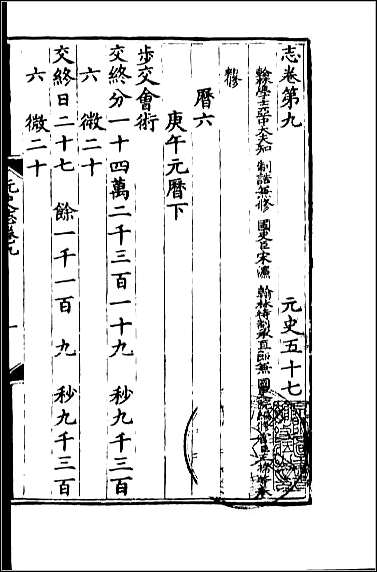 志卷第九 元史五十七
翰學士亞中大夫知 制誥兼修 國史臣宋濂 翰林待制承直郎兼 國史院編修官臣王禕奉
敕修
曆六
庚午元曆下
步交會術
交終分一十四萬二千三百一十九 秒九千三百
六 微二十
交終日二十七 餘一千一百 九 秒九千三百
六 微二十
元史志卷九 一